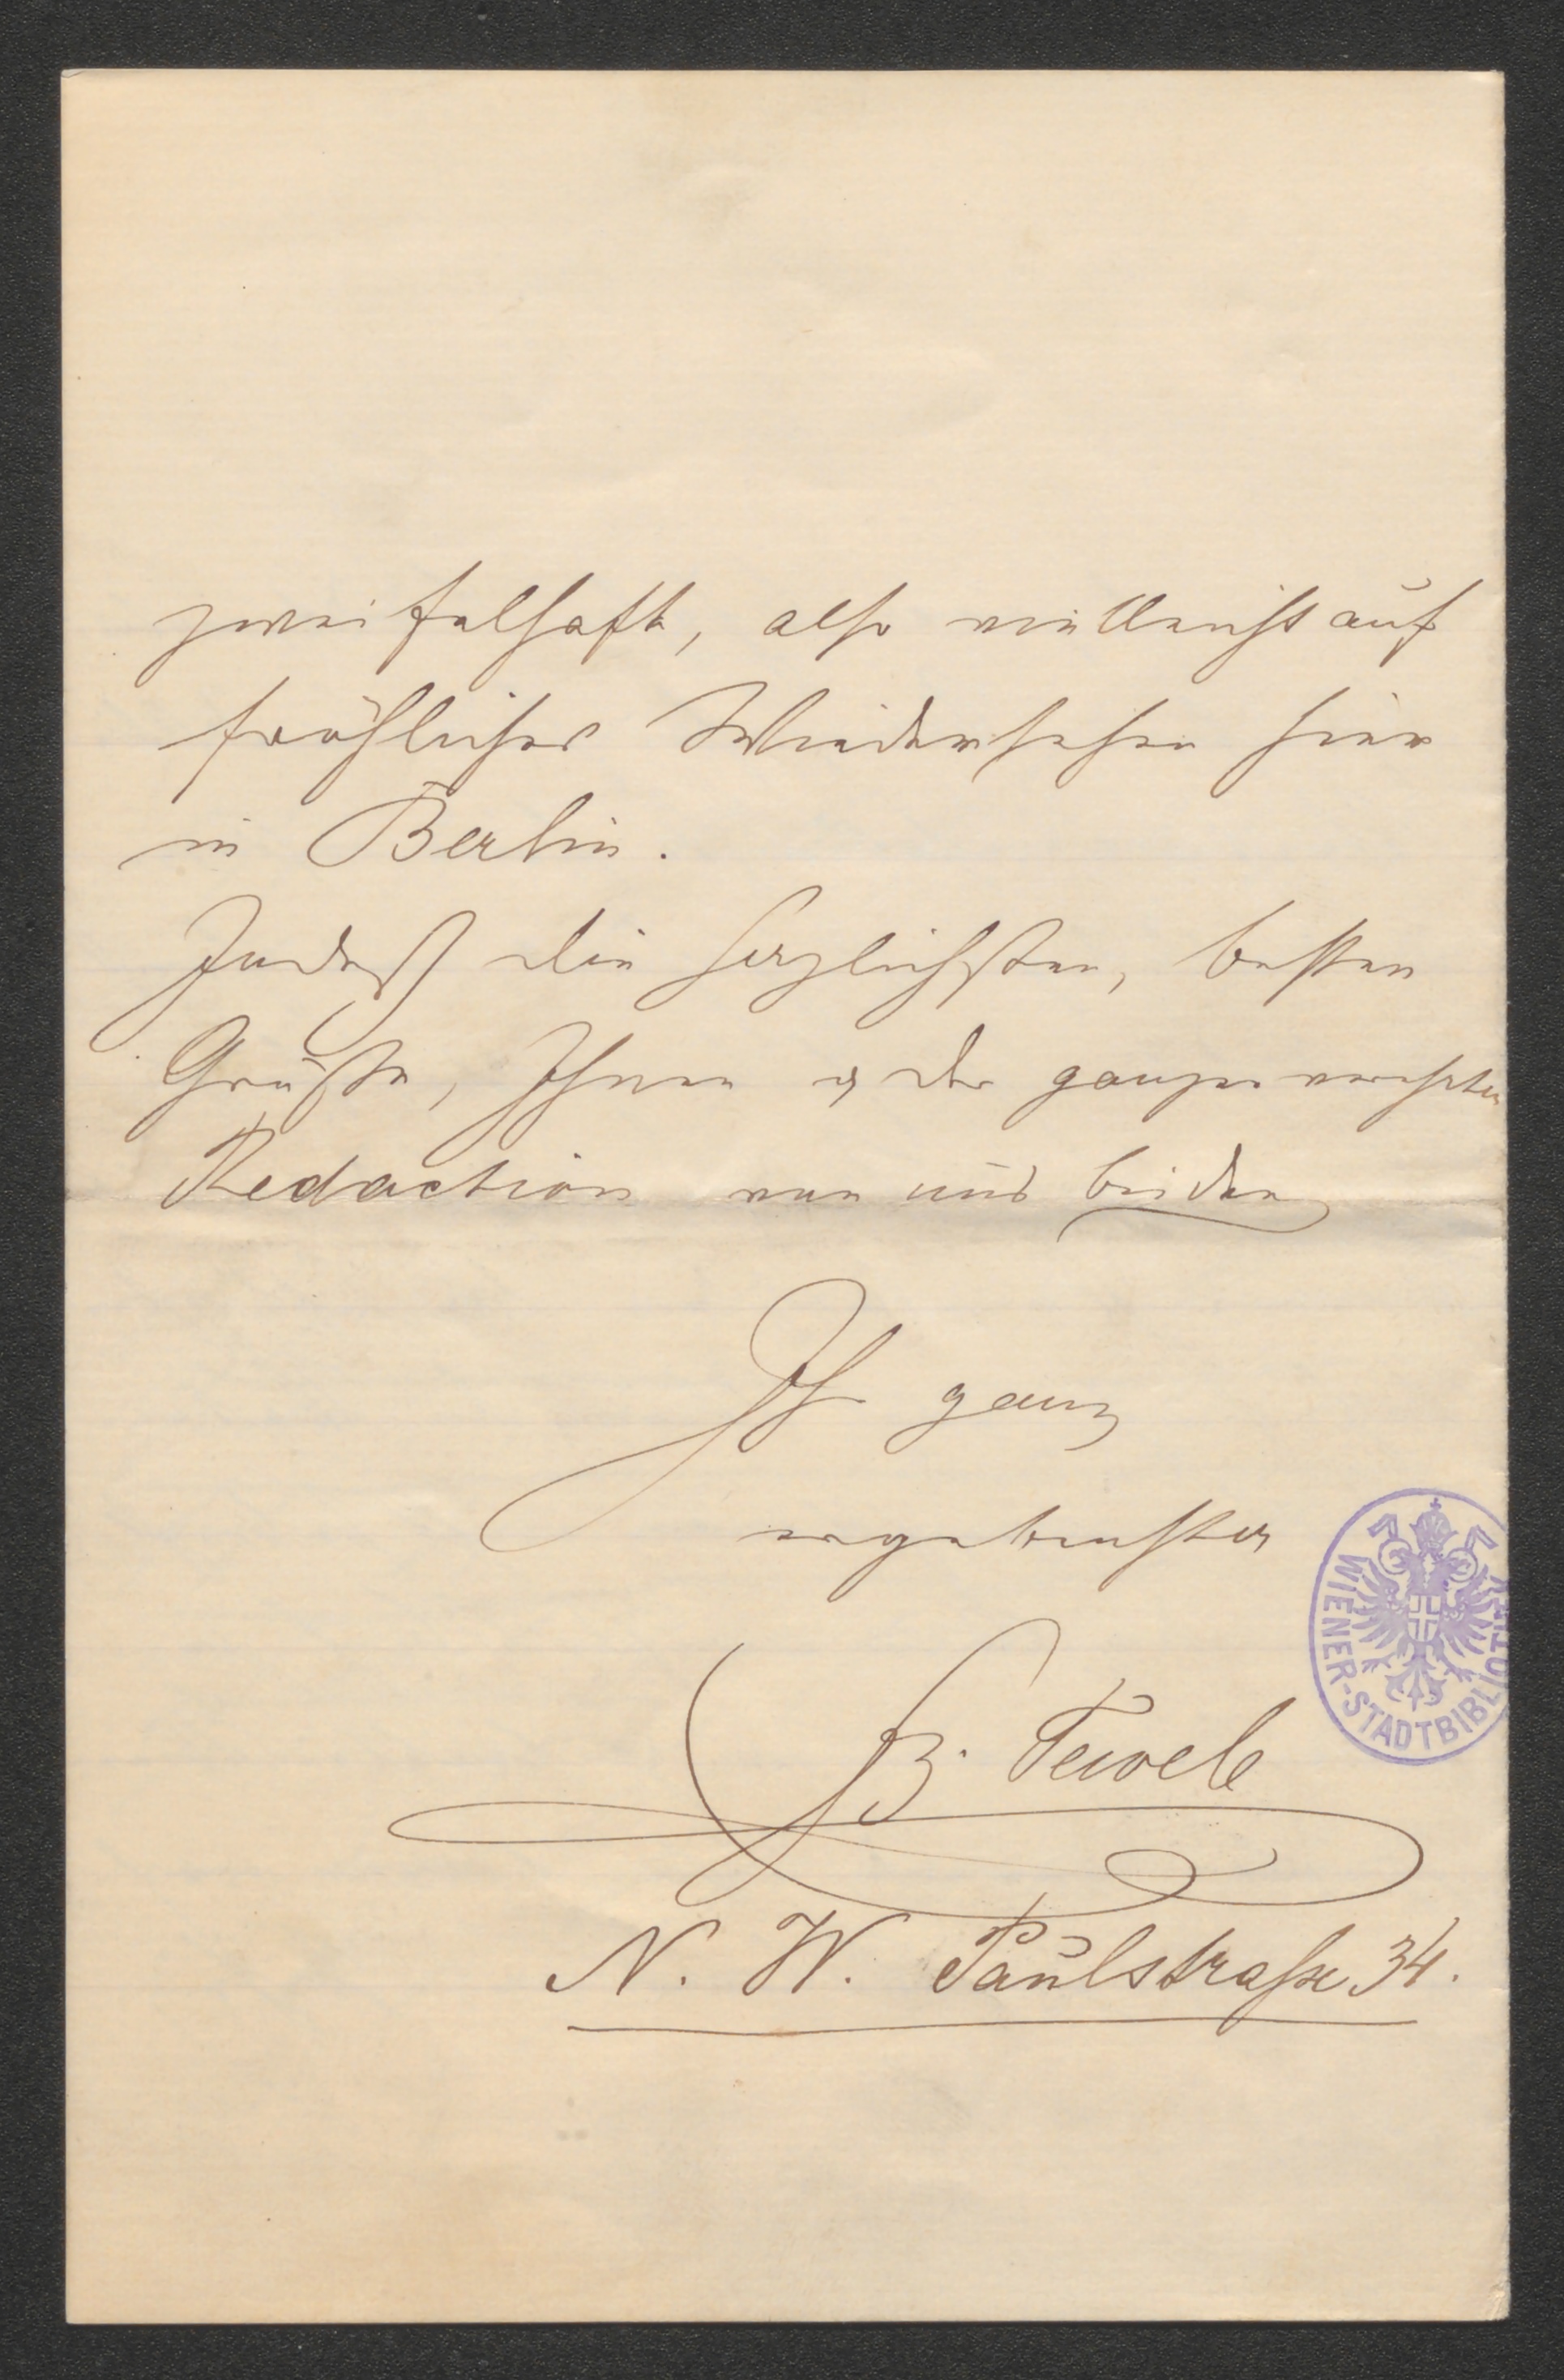 zweifelhaft, also vielleicht auf
fröhliches Wiedersehen hier
in Berlin.
Indeß die herzlichsten, besten
Grüße, Ihnen & der ganzen verehrten
Redaction von uns beiden
Ihr ganz
ergebenster
Tewele
N. W. Paulstraße 34.
WIENER-STADTBIBLIOTHEK